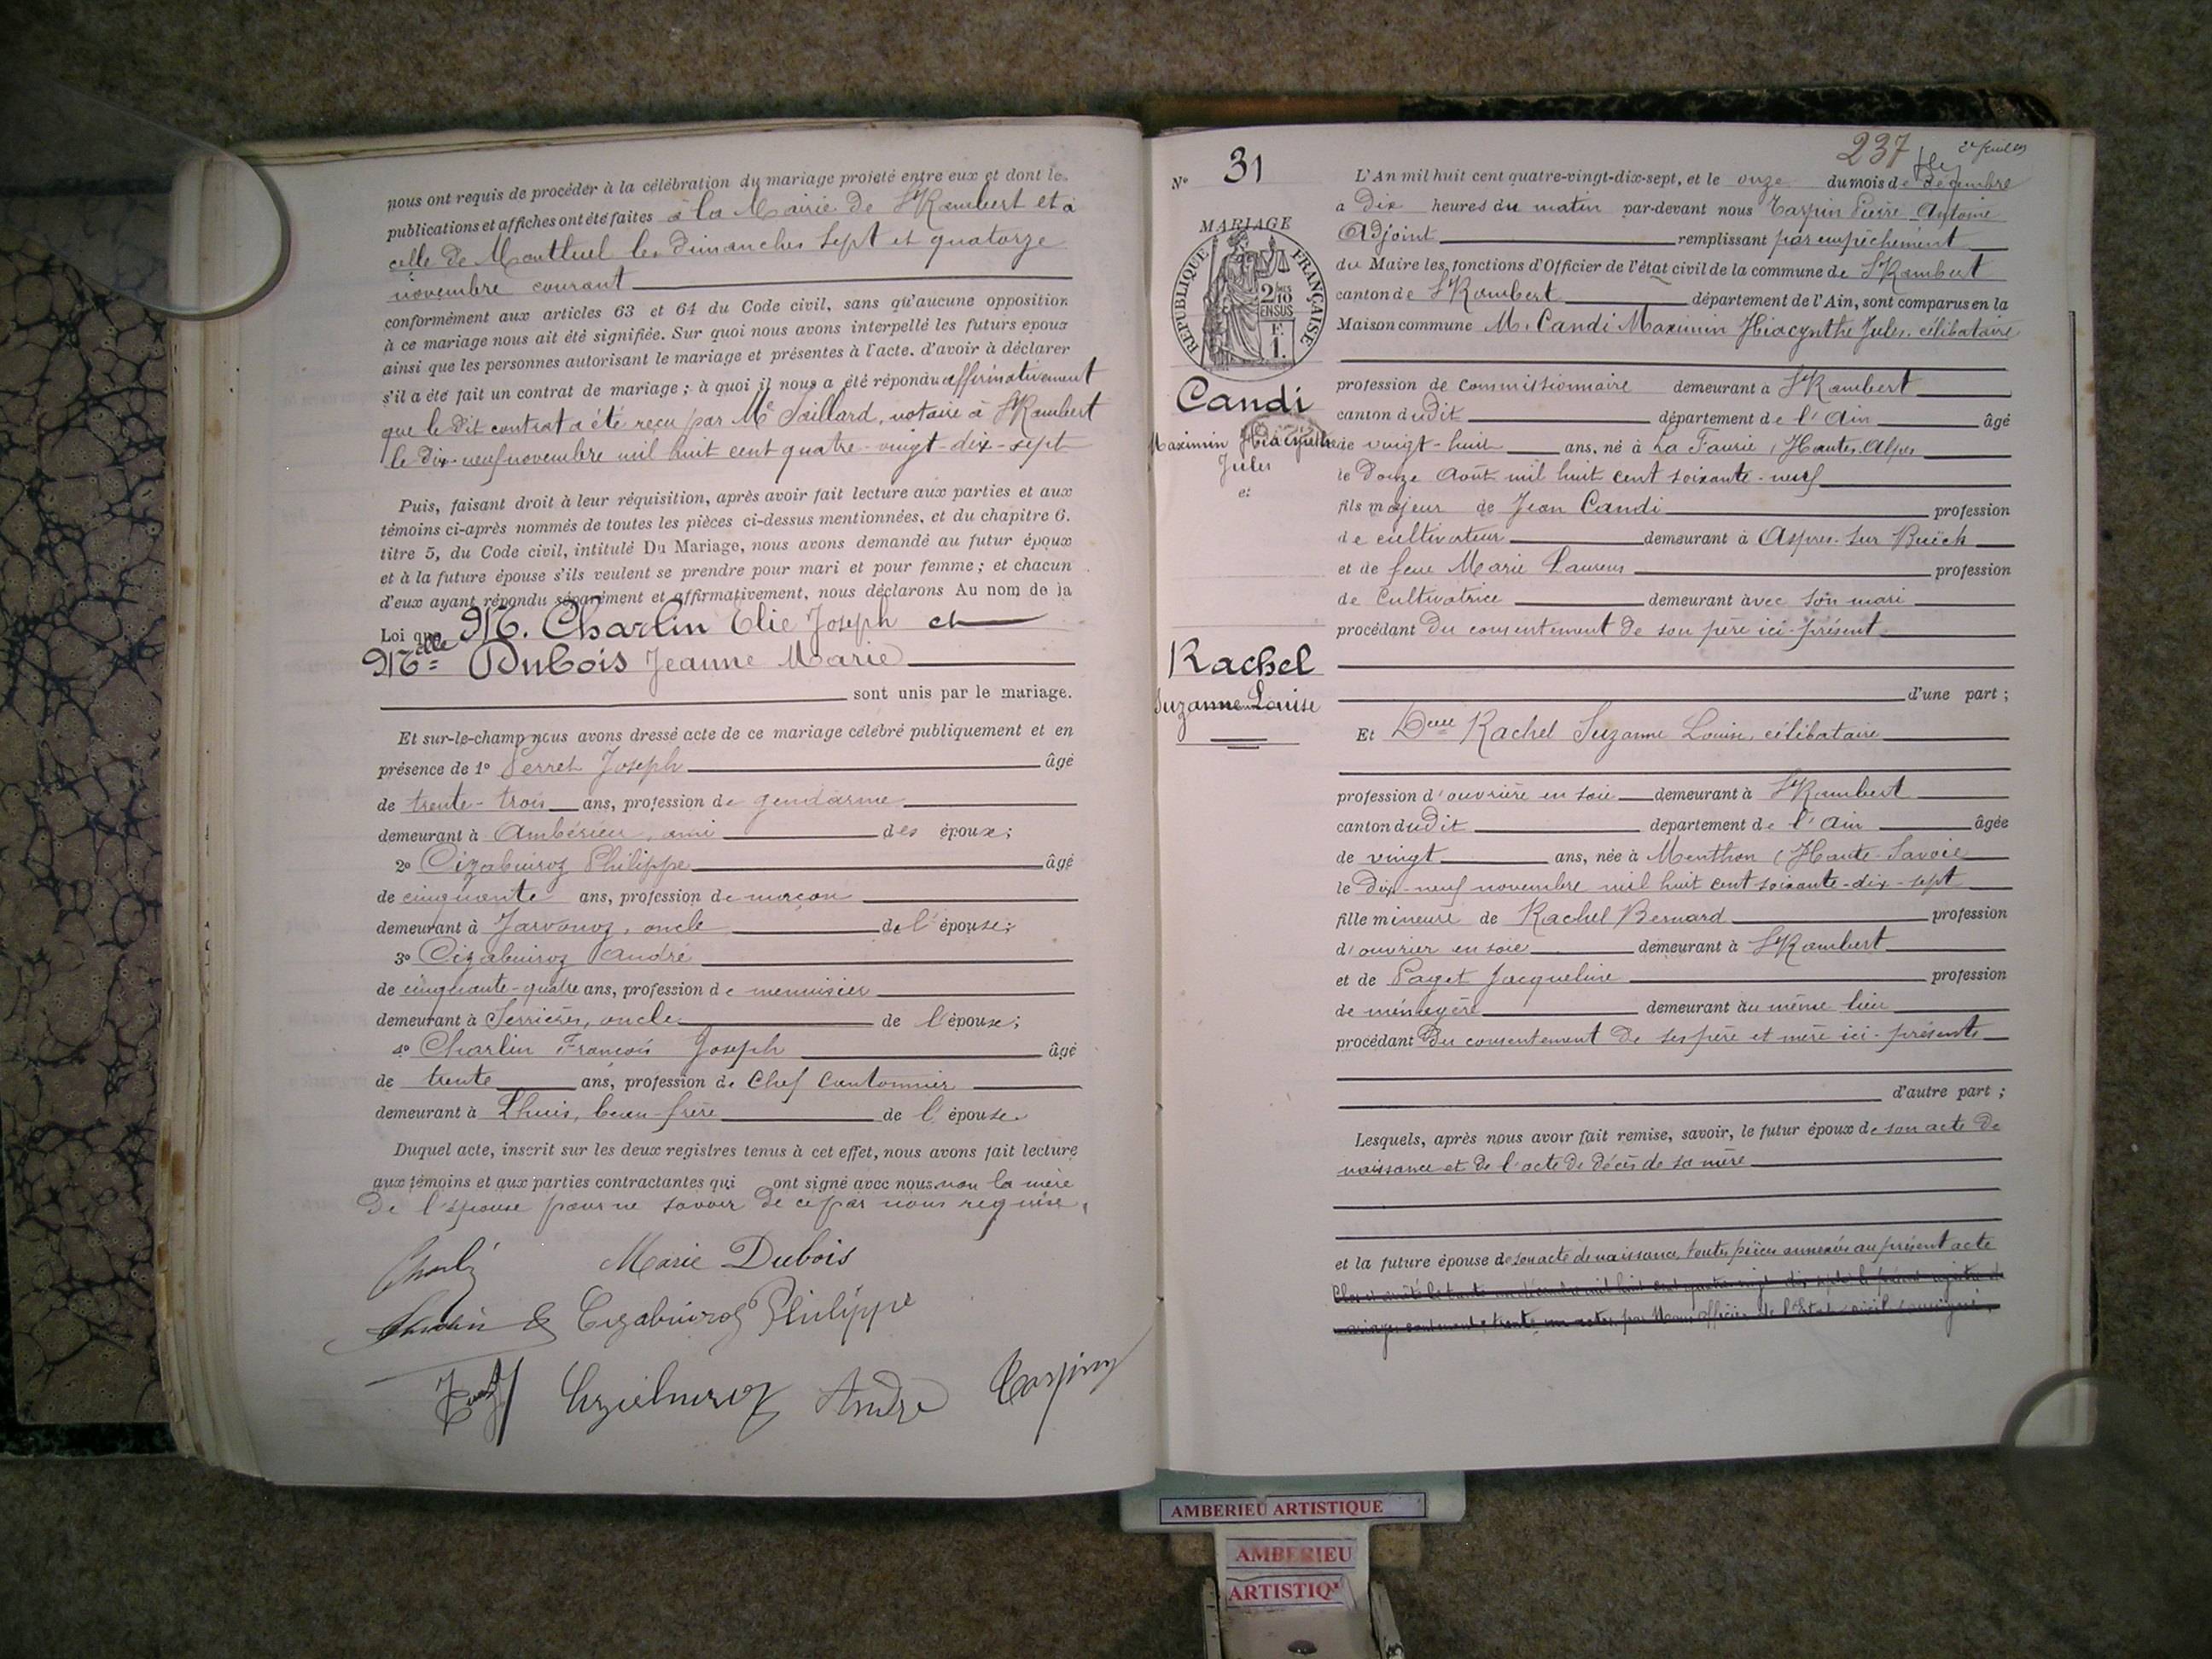 nous ont requis de procéder à la célébration du mariage projeté entre eux et dont les
publications et affiches ont été faites à la Mairie de St Rambert et à
celle de Montluel les dimanches sept et quatorze
novembre courant
conformément aux articles 63 et 64 du Code civil, sans qu'aucune opposition
à ce mariage nous ait été signifiée. Sur quoi nous avons interpellé les futurs époux
ainsi que les personnes autorisant le mariage et présentes à l'acte, d'avoir à déclarer
s'il a été fait un contrat de mariage ; à quoi il nous a été répondu affirmativement
que le dit contrat a été reçu par Me Saillard, notaire à St Rambert
le dix-neuf novembre mil huit cent quatre-vingt-dix-sept
Puis, faisant droit à leur réquisition, après avoir fait lecture aux parties et aux
témoins ci-après nommés de toutes les pièces ci-dessus mentionnées, et du chapitre 6.
titre 5, du Code civil, intitulé Du Mariage, nous avons demandé au futur époux
et à la future épouse s'ils veulent se prendre pour mari et pour femme ; et chacun
d'eux ayant répondu séparément et affirmativement, nous déclarons Au nom de la
Loi que M. Charlin Elie Joseph et
Melle Dubois Jeanne Marie
sont unis par le mariage.
Et sur-le-champ nous avons dressé acte de ce mariage célébré publiquement et en
présence de 1° Perret Joseph âgé
de trente-trois ans, profession de gendarme
demeurant à Ambérieu, ami des époux ;
2° Cizabuiroz Philippe âgé
de cinquante ans, profession de maçon
demeurant à Jarvonoz, oncle de l'épouse ;
3° Cizabuiroz André
de cinquante-quatre ans, profession de menuisier
demeurant à Serrières, oncle de l'épouse ;
4° Charlin François Joseph âgé
de trente ans, profession de Chef Cantonnier
demeurant à Lhuis, beau-frère de l'épouse.
Duquel acte, inscrit sur les deux registres tenus à cet effet, nous avons fait lecture
aux témoins et aux parties contractantes qui ont signé avec nous non la mère
de l'épouse pour ne savoir de ce par nous requise.
Charlin Marie Dubois
Cizabuiroz Philippe
Cizabuiroz André Taspin
237
2e feuillet
N° 31
MARIAGE
RÉPUBLIQUE FRANÇAISE
2/10
EN SUS
F.
1.
Candi
Maximin Hiacynthe
Jules
et
Rachel
Suzanne Louise
L'An mil huit cent quatre-vingt-dix-sept, et le onze du mois de décembre
à Dix heures du matin par-devant nous Taspin Pierre Antoine
Adjoint remplissant par empêchement
du Maire les fonctions d'Officier de l'état civil de la commune de St Rambert
canton de St Rambert département de l'Ain, sont comparus en la
Maison commune M. Candi Maximin Hiacynthe Jules, célibataire
profession de commissionnaire demeurant à St Rambert
canton dudit département de l'Ain âgé
de vingt-huit ans, né à La Faurie (Hautes-Alpes
le Douze Août mil huit cent soixante-neuf
fils majeur de Jean Candi profession
de cultivateur demeurant à Aspres-sur Buëch
et de feue Marie Laurens profession
de Cultivatrice demeurant avec son mari
procédant du consentement de son père ici-présent
d'une part ;
Et Delle Rachel Suzanne Louise, célibataire
profession d'ouvrière en soie demeurant à St Rambert
canton dudit département de l'Ain âgée
de vingt ans, née à Menthon (Haute-Savoie
le dix-neuf novembre mil huit cent soixante-dix-sept
fille mineure de Rachel Bernard profession
d'ouvrier en soie demeurant à St Rambert
et de Paget Jacqueline profession
de ménagère demeurant au même lieu
procédant du consentement de ses père et mère ici-présents
d'autre part ;
Lesquels, après nous avoir fait remise, savoir, le futur époux de son acte de
naissance et de l'acte de décès de sa mère
et la future épouse de son acte de naissance, toutes pièces annexées au présent acte
Clos et arrêté le trente un décembre mil huit cent quatre vingt dix sept le présent registre de
mariages contenant trente un actes par Nous officier de l'Etat civil soussigné
AMBERIEU ARTISTIQUE
AMBERIEU
ARTISTIQ